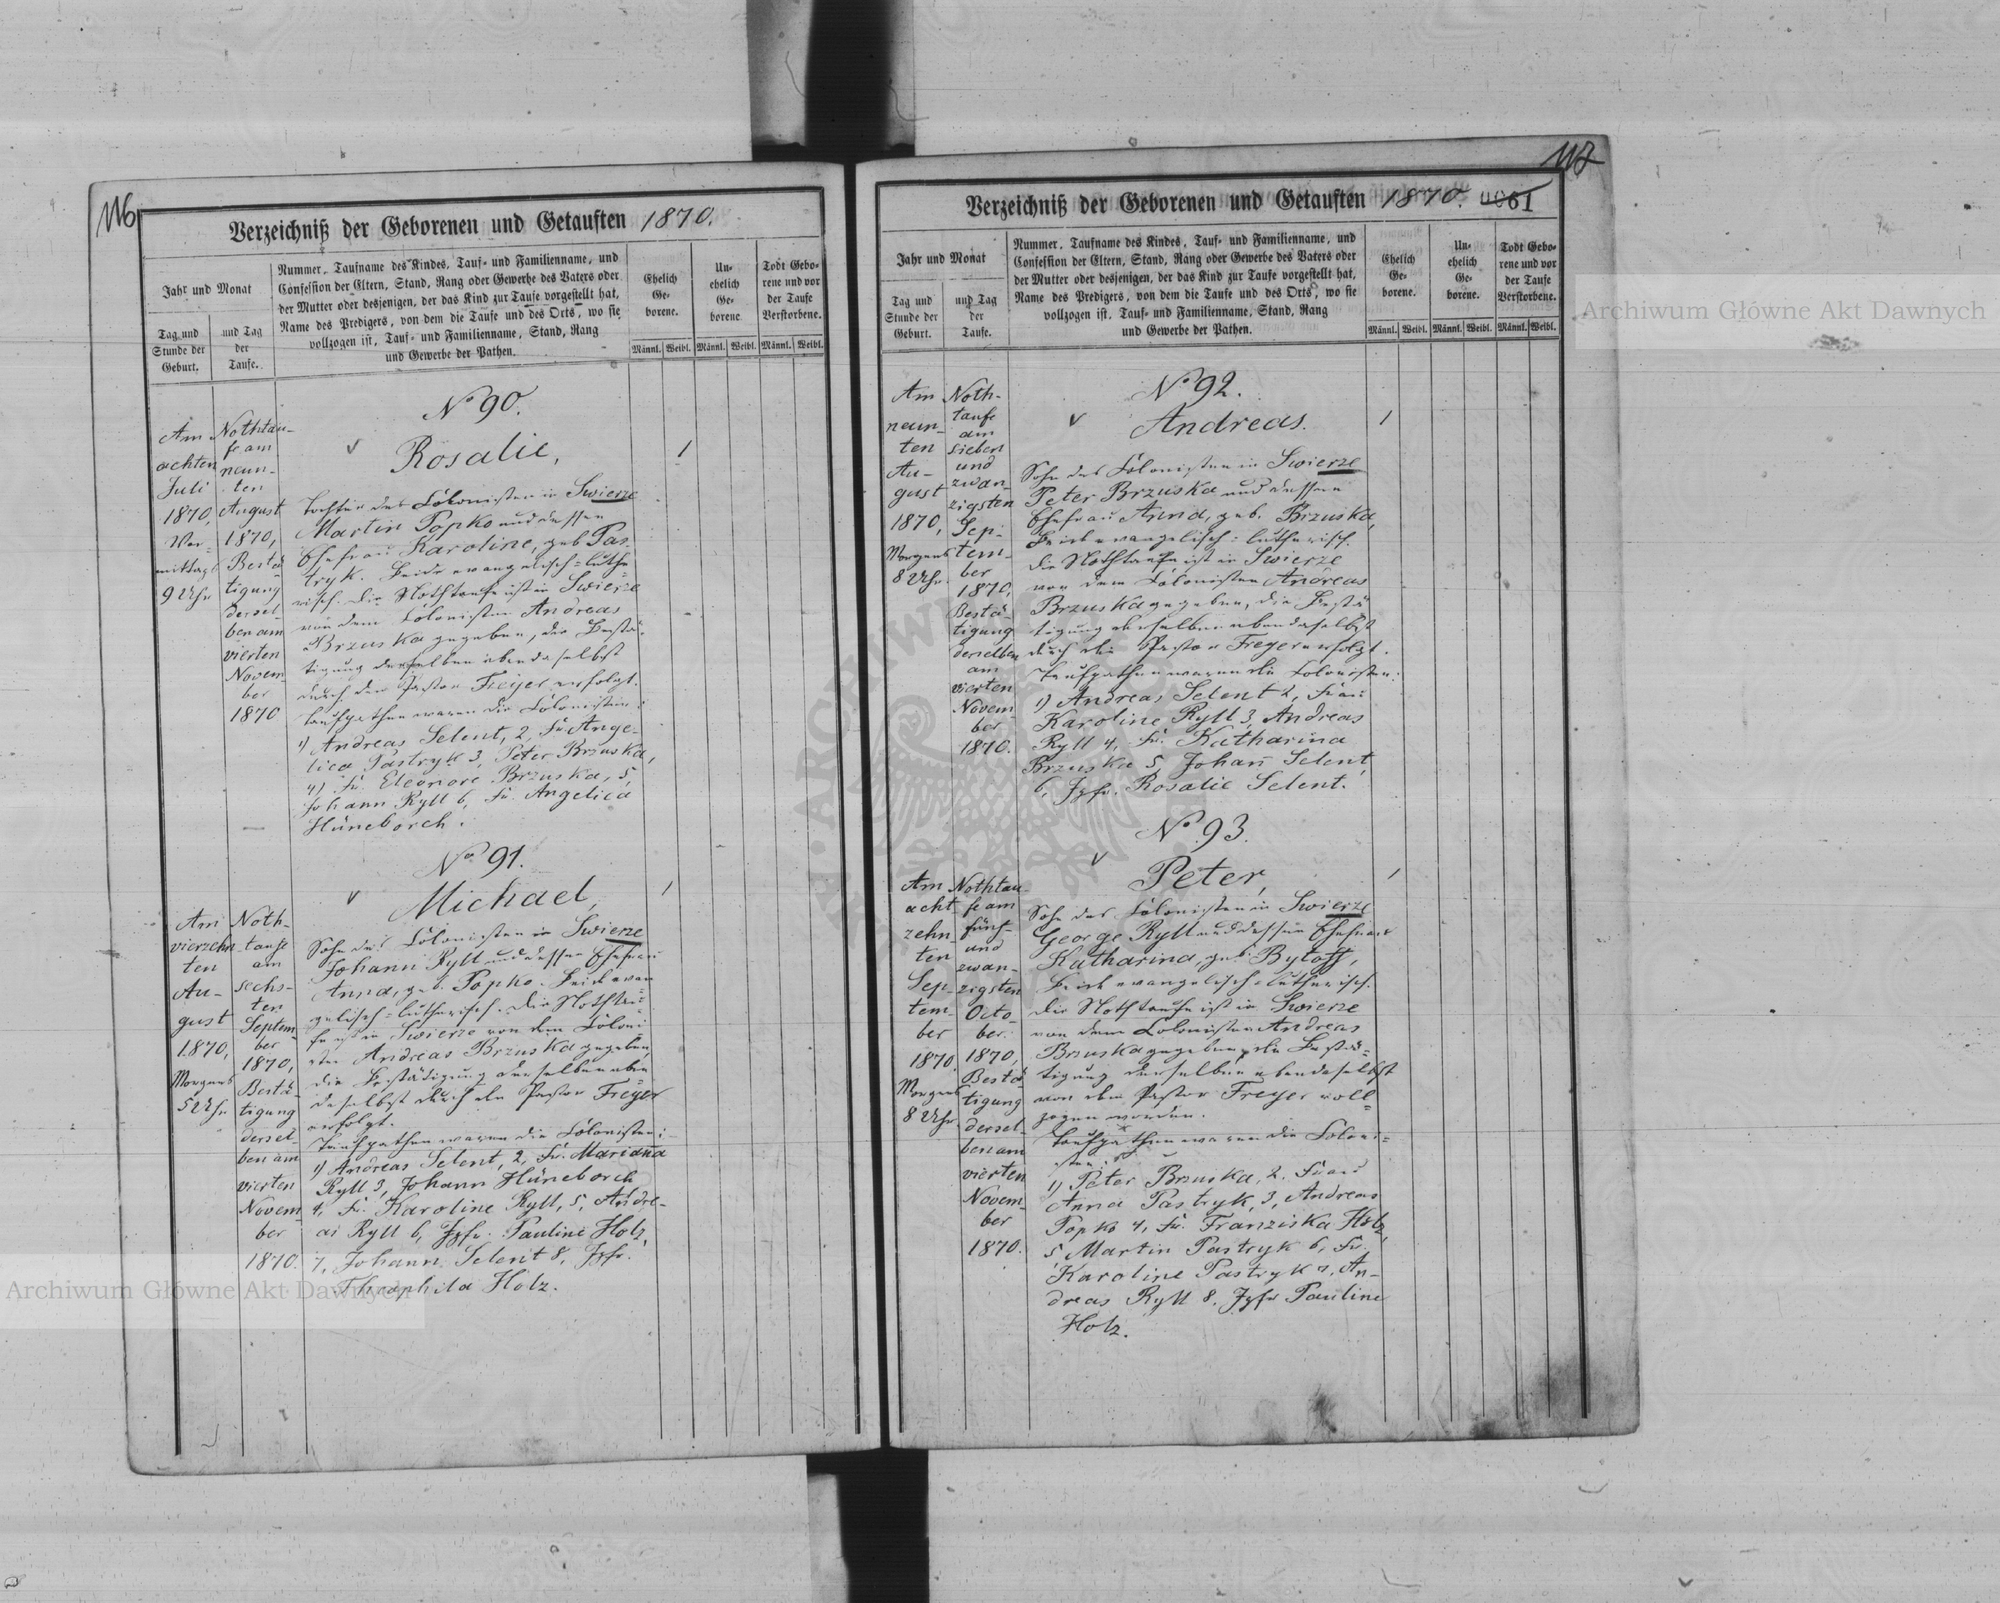 116
Verzeichniß der Geborenen und Getauften 1870.
Jahr und Monat
Tag und
Stunde der
Geburt.
und Tag
der
Taufe.
Nummer, Taufname des Kindes, Tauf- und Familienname, und
Confession der Eltern, Stand, Rang oder Gewerbe des Vaters oder
der Mutter oder desjenigen, der das Kind zur Taufe vorgestellt hat,
Name des Predigers, von dem die Taufe und des Orts, wo sie
vollzogen ist, Tauf- und Familienname, Stand, Rang
und Gewerbe der Pathen.
Ehelich
Ge-
borene.
Un-
ehelich
Ge-
borene
Todt Gebo-
rene und vor
der Taufe
Verstorbene.
Männl. Weibl. Männl. Weibl. Männl. Weibl.
Am
achten
Juli
1870,
Vor-
mittags
9 Uhr
Nothtau-
fe am
neun-
ten
August
1870,
Bestä
tigung
dersel-
ben am
vierten
Novem-
ber
1870
No 90.
Rosalie,
1
Tochter des Colonisten in Swierze
Martin Popko und dessen
Ehefrau Karoline, geb. Pas-
tryk. Beide evangelisch=luthe
risch. Die Nothtaufe ist in Swierze
von dem Colonisten Andreas
Brzuska gegeben, die Bestä-
tigung derselben ebendaselbst
durch den Pastor Freyer erfolgt.
Taufpathen waren die Colonisten:
1) Andreas Selent, 2, Fr. Ange-
lica Pastryk 3, Peter Brzuska,
4) Fr. Eleonore Brzuska, 5,
Johann Ryll 6, Fr. Angelica
Hüneborch.
Am
vierzehn-
ten
Au-
gust
1870,
Morgens
5 Uhr
Noth-
taufe
am
sechs-
ten
Septem-
ber
1870,
Bestä-
tigung
dersel-
ben am
vierten
Novem-
ber
1870.
No 91.
Michael,
1
Sohn des Colonisten in Swierze
Johann Ryll und dessen Ehefrau
Anna, geb. Popko. Beide evan
gelisch=lutherisch. Die Nothtau=
fe ist in Swierze von dem Coloni
sten Andreas Brzuska gegeben,
die Bestätigung derselben eben
daselbst durch den Pastor Freyer
erfolgt.
Taufpathen waren die Colonisten:
1) Andreas Selent, 2, Fr. Mariana
Ryll 3, Johann Hüneborch
4, Fr. Karoline Ryll, 5, Andre-
as Ryll 6, Jgfr. Pauline Holz,
7, Johann Selent 8, Jgfr.
Theophila Holz.
117
Verzeichniß der Geborenen und Getauften 1870. 0061
Jahr und Monat
Tag und
Stunde der
Geburt.
und Tag
der
Taufe.
Nummer, Taufname des Kindes, Tauf- und Familienname, und
Confession der Eltern, Stand, Rang oder Gewerbe des Vaters oder
der Mutter oder desjenigen, der das Kind zur Taufe vorgestellt hat,
Name des Predigers, von dem die Taufe und des Orts, wo sie
vollzogen ist, Tauf- und Familienname, Stand, Rang
und Gewerbe der Pathen.
Ehelich
Ge-
borene.
Un-
ehelich
Ge-
borene.
Todt Gebo-
rene und vor
der Taufe
Verstorbene.
Männl. Weibl. Männl. Weibl. Männl. Weibl.
Am
neun-
ten
Au-
gust
1870,
Morgens
8 Uhr.
Noth-
taufe
am
sieben
und
zwan-
zigsten
Sep-
tem-
ber
1870,
Bestä-
tigung
derselben
am
vierten
Novem-
ber
1870.
No 92.
Andreas.
1
Sohn des Colonisten in Swierze
Peter Brzuska und dessen
Ehefrau Anna, geb. Brzuska,
Beide evangelisch=lutherisch.
Die Nothtaufe ist in Swierze
von dem Colonisten Andreas
Brzuska gegeben, die Bestä
tigung derselben ebendaselbst
durch den Pastor Freyer erfolgt.
Taufpathen waren die Colonisten:
1) Andreas Selent 2, Frau
Karoline Ryll 3, Andreas
Ryll 4, Fr. Katharina
Brzuska 5, Johan̄ Selent,
6, Jgfr. Rosalie Selent.
Am
acht-
zehn-
ten
Sep-
tem-
ber
1870,
Morgens
8 Uhr.
Nothtau-
fe am
fünf-
und
zwan-
zigsten
Octo-
ber.
1870,
Bestä
tigung
dersel-
ben am
vierten
Novem-
ber
1870.
No 93.
Peter,
1
Sohn des Colonisten in Swierze
George Ryll und dessen Ehefrau
Katharina, geb. Bytoff,
Beide evangelisch=lutherisch.
Die Nothtaufe ist in Swierze
von dem Colonisten Andreas
Brzuska gegeben, die Bestä=
tigung derselben ebendaselbst
von dem Pastor Freyer voll=
zogen worden.
Taufpathen waren die Coloni=
sten:
1) Peter Brzuska, 2. Frau
Anna Pastryk, 3, Andreas
Popko 4, Fr. Franziska Holz,
5 Martin Pastryk 6, Fr.
Karoline Pastryk 7, An-
dreas Ryll 8, Jgfr Pauline
Holz.
Archiwum Główne Akt Dawnych
Archiwum Główne Akt Dawnych